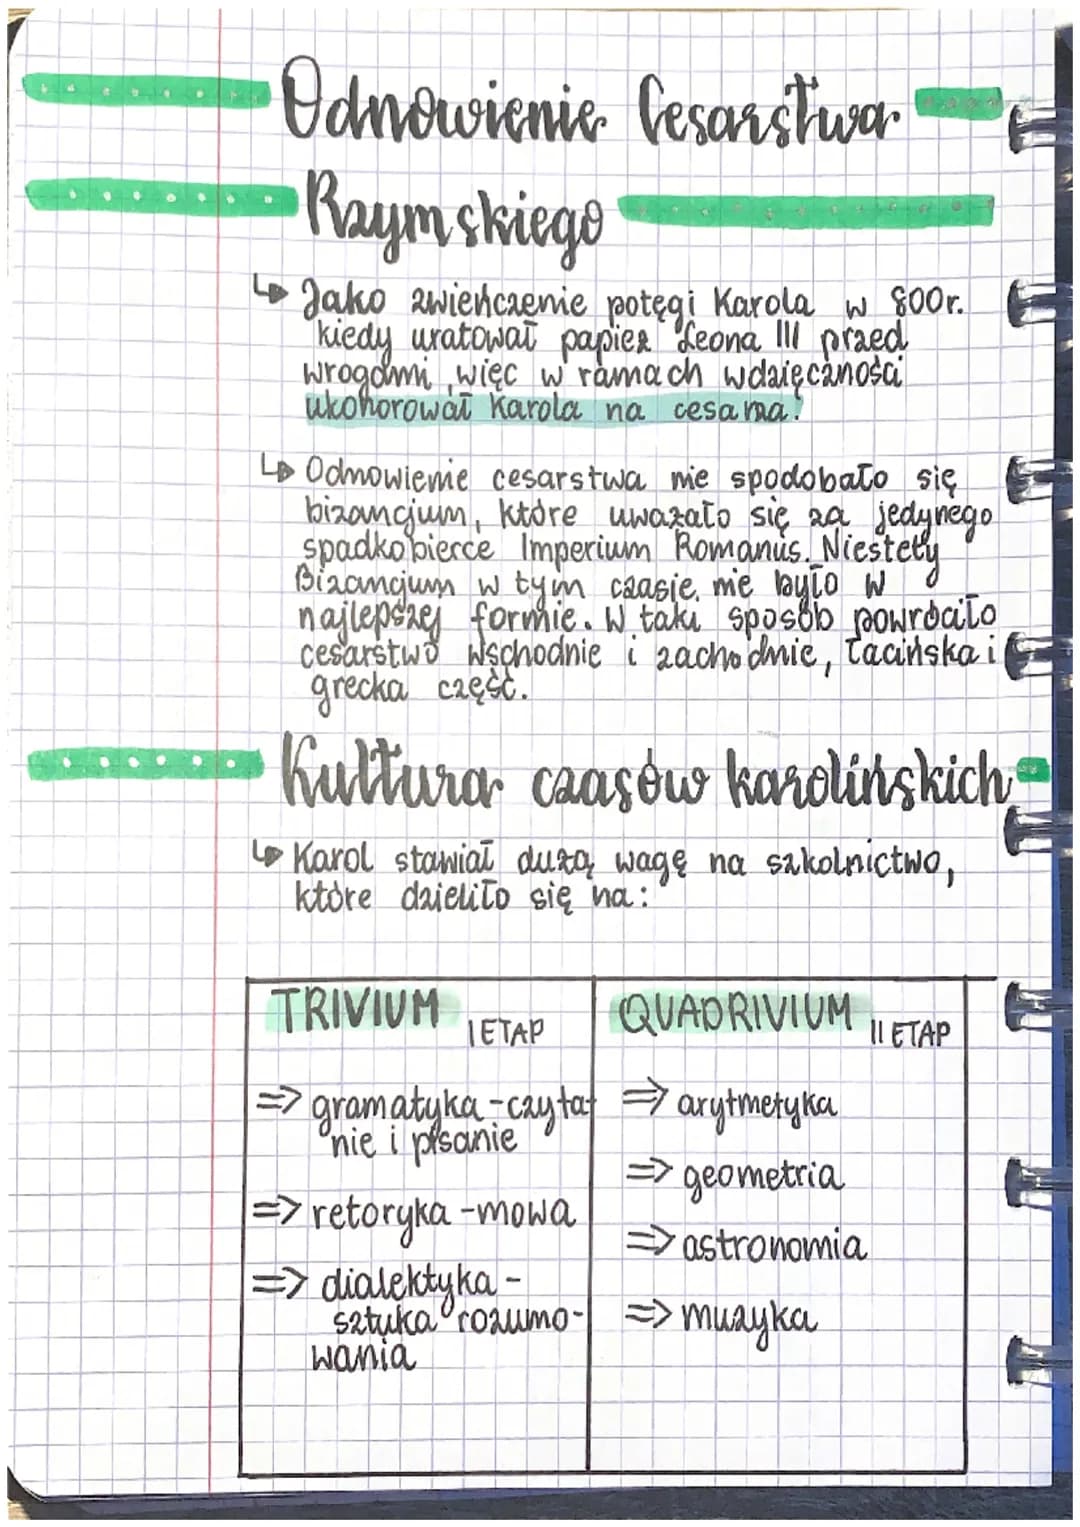 Odnowienie Cesarstwa
Rzymskiego
↳ Jako zwieńczenie potęgi Karola w 800r.
kiedy uratował papież Leona III przed
wrogami, więc w ramach wdzięczności
ukonorował Karola na cesarza.
↳ Odnowienie cesarstwa nie spodobało się
bizancjum, które uważało się za jedynego
spadkobierce Imperium Romanus. Niestety
Bizancjum w tym czasie, nie było w
najlepszej formie. W taki sposób powróciło
cesarstwo wschodnie i zachodnie, łacińska i
grecka część.
Kultura czasów karolińskich
↳ Karol stawiał dużą wagę na szkolnictwo,
które dzieliło się na:
TRIVIUM I ETAP
⇒ gramatyka - czyta-
nie i pisanie
⇒ retoryka - mowa
⇒ dialektyka -
sztuka rozumo-
wania
QUADRIVIUM II ETAP
⇒ arytmetyka
⇒ geometria
⇒ astronomia
⇒ muzyka